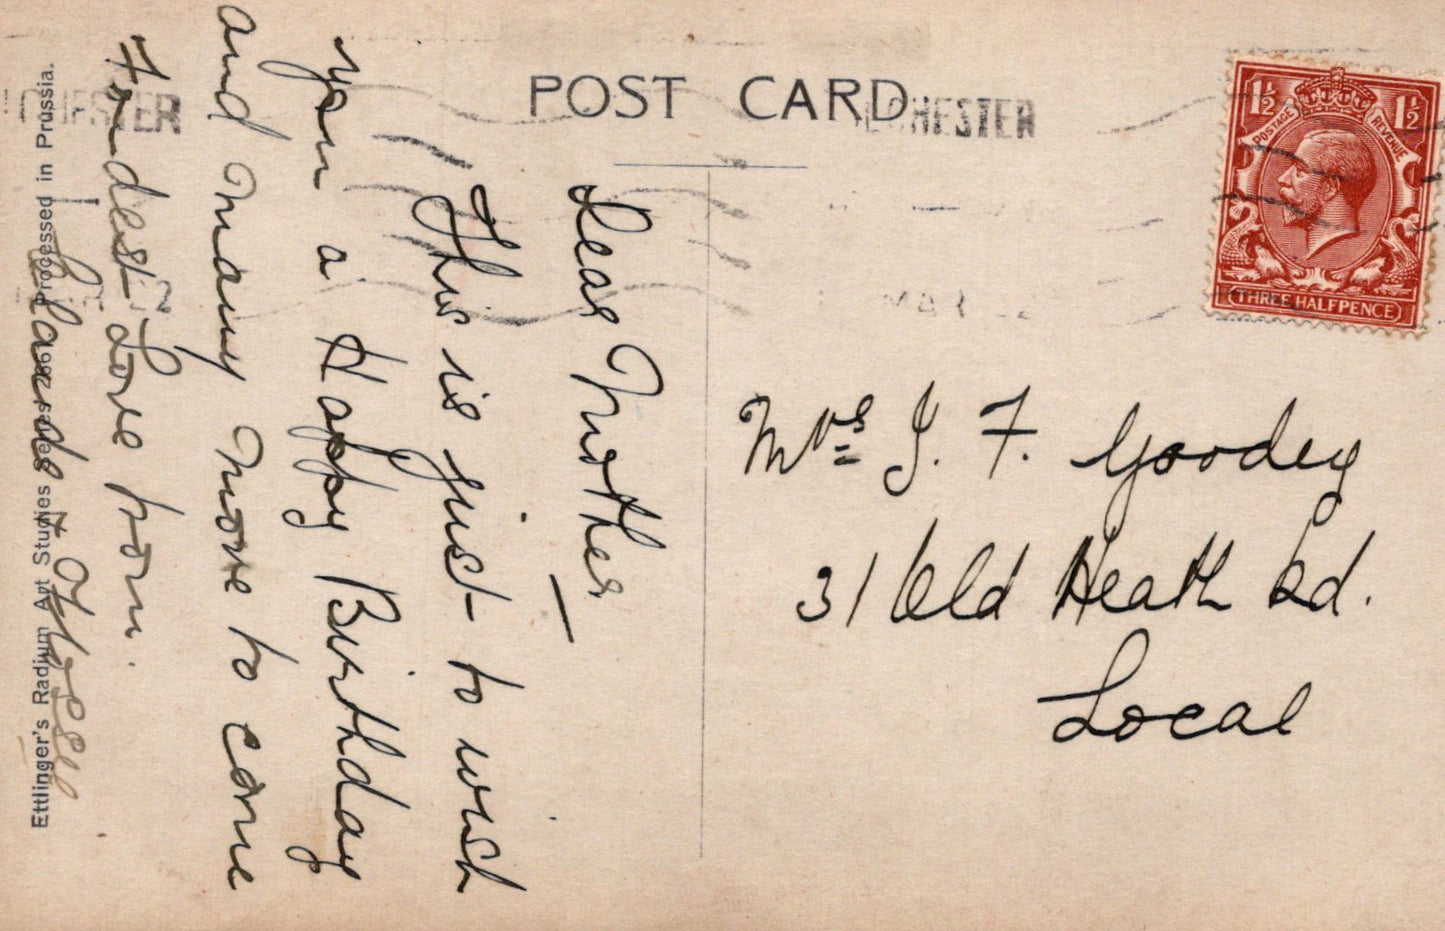 POST CARD
Dear Mother
This is just to wish
you a Happy Birthday
and many more to come
Fondest Love from
& Flossy
Mrs J. F. Goodey
31 Old Heath Rd.
Local
1½ 1½
POSTAGE REVENUE
THREE HALFPENCE
CHESTER
MAR 22
Ettlinger's Radium Art Studies Series Processed in Prussia.